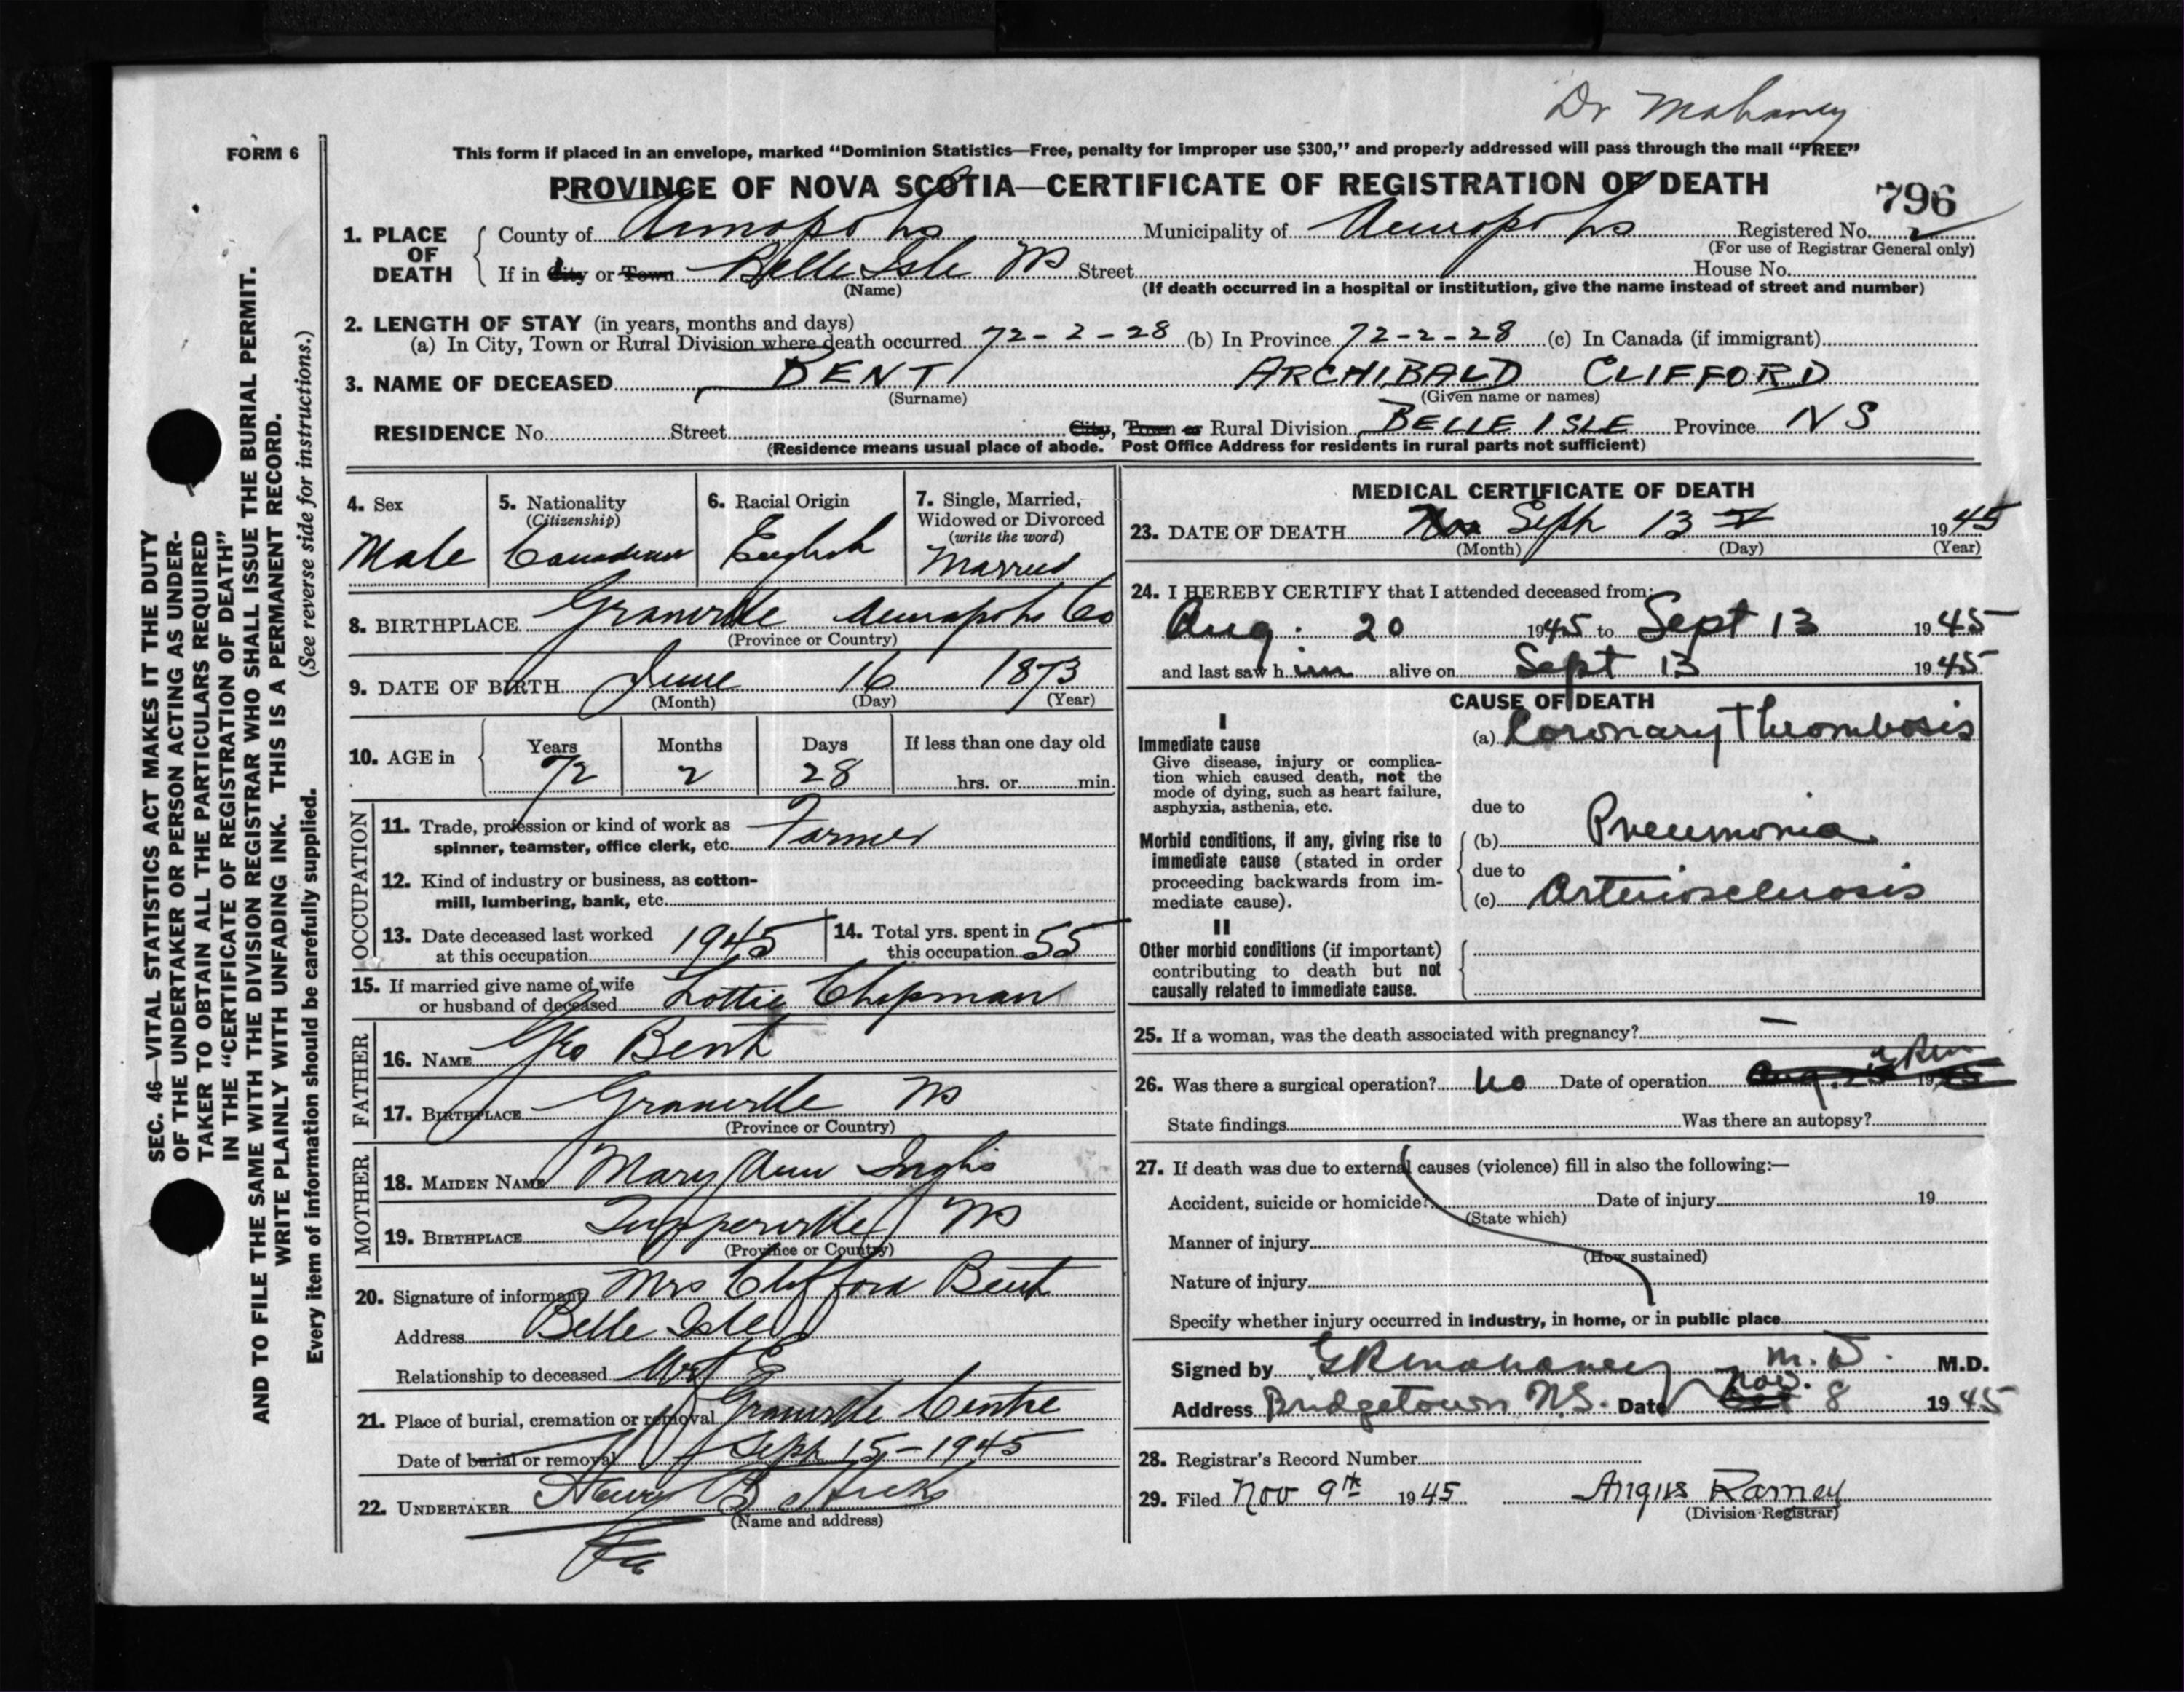 Dr Mahaney
FORM 6
This form if placed in an envelope, marked “Dominion Statistics—Free, penalty for improper use $300,” and properly addressed will pass through the mail “FREE”
PROVINCE OF NOVA SCOTIA—CERTIFICATE OF REGISTRATION OF DEATH
796
1. PLACE OF DEATH
County of Annapolis Municipality of Annapolis Registered No.
(For use of Registrar General only)
If in City or Town Belle Isle NS Street House No.
(Name) (If death occurred in a hospital or institution, give the name instead of street and number)
2. LENGTH OF STAY (in years, months and days)
(a) In City, Town or Rural Division where death occurred 72-2-28 (b) In Province 72-2-28 (c) In Canada (if immigrant)
3. NAME OF DECEASED BENT ARCHIBALD CLIFFORD
(Surname) (Given name or names)
RESIDENCE No. Street City, Town or Rural Division BELLE ISLE Province NS
(Residence means usual place of abode. Post Office Address for residents in rural parts not sufficient)
4. Sex
Male
5. Nationality
(Citizenship)
Canadian
6. Racial Origin
English
7. Single, Married,
Widowed or Divorced
(write the word)
Married
8. BIRTHPLACE Granville Annapolis Co
(Province or Country)
9. DATE OF BIRTH June 16 1873
(Month) (Day) (Year)
10. AGE in
Years Months Days If less than one day old
72 2 28 hrs. or min.
OCCUPATION
11. Trade, profession or kind of work as
spinner, teamster, office clerk, etc. Farmer
12. Kind of industry or business, as cotton-
mill, lumbering, bank, etc.
13. Date deceased last worked
at this occupation 1945
14. Total yrs. spent in
this occupation 55
15. If married give name of wife
or husband of deceased Lottie Chipman
FATHER
16. NAME Geo Bent
17. BIRTHPLACE Granville NS
(Province or Country)
MOTHER
18. MAIDEN NAME Mary Ann Inglis
19. BIRTHPLACE Tupperville NS
(Province or Country)
20. Signature of informant Mrs Clifford Bent
Address Belle Isle
Relationship to deceased Wife
21. Place of burial, cremation or removal Granville Centre
Date of burial or removal Sept 15-1945
22. UNDERTAKER Henry B Hicks
(Name and address)
MEDICAL CERTIFICATE OF DEATH
23. DATE OF DEATH Sept 13 1945
(Month) (Day) (Year)
24. I HEREBY CERTIFY that I attended deceased from:
Aug. 20 1945 to Sept 13 1945
and last saw him alive on Sept 13 1945
CAUSE OF DEATH
I
Immediate cause
Give disease, injury or complica-
tion which caused death, not the
mode of dying, such as heart failure,
asphyxia, asthenia, etc.
(a) Coronary Thrombosis
due to
Morbid conditions, if any, giving rise to
immediate cause (stated in order
proceeding backwards from im-
mediate cause).
(b) Pneumonia
due to
(c) Arteriosclerosis
II
Other morbid conditions (if important)
contributing to death but not
causally related to immediate cause.
25. If a woman, was the death associated with pregnancy? —
26. Was there a surgical operation? No Date of operation Aug. 1945
State findings Was there an autopsy?
27. If death was due to external causes (violence) fill in also the following:—
Accident, suicide or homicide? Date of injury 19
(State which)
Manner of injury
(How sustained)
Nature of injury
Specify whether injury occurred in industry, in home, or in public place
Signed by GRMahaney M.D. M.D.
Address Bridgetown N.S. Date Nov. 8 1945
28. Registrar's Record Number
29. Filed Nov 9th 1945 Angus Ramey
(Division Registrar)
SEC. 46—VITAL STATISTICS ACT MAKES IT THE DUTY
OF THE UNDERTAKER OR PERSON ACTING AS UNDER-
TAKER TO OBTAIN ALL THE PARTICULARS REQUIRED
IN THE “CERTIFICATE OF REGISTRATION OF DEATH”
AND TO FILE THE SAME WITH THE DIVISION REGISTRAR WHO SHALL ISSUE THE BURIAL PERMIT.
WRITE PLAINLY WITH UNFADING INK. THIS IS A PERMANENT RECORD.
Every item of information should be carefully supplied. (See reverse side for instructions.)